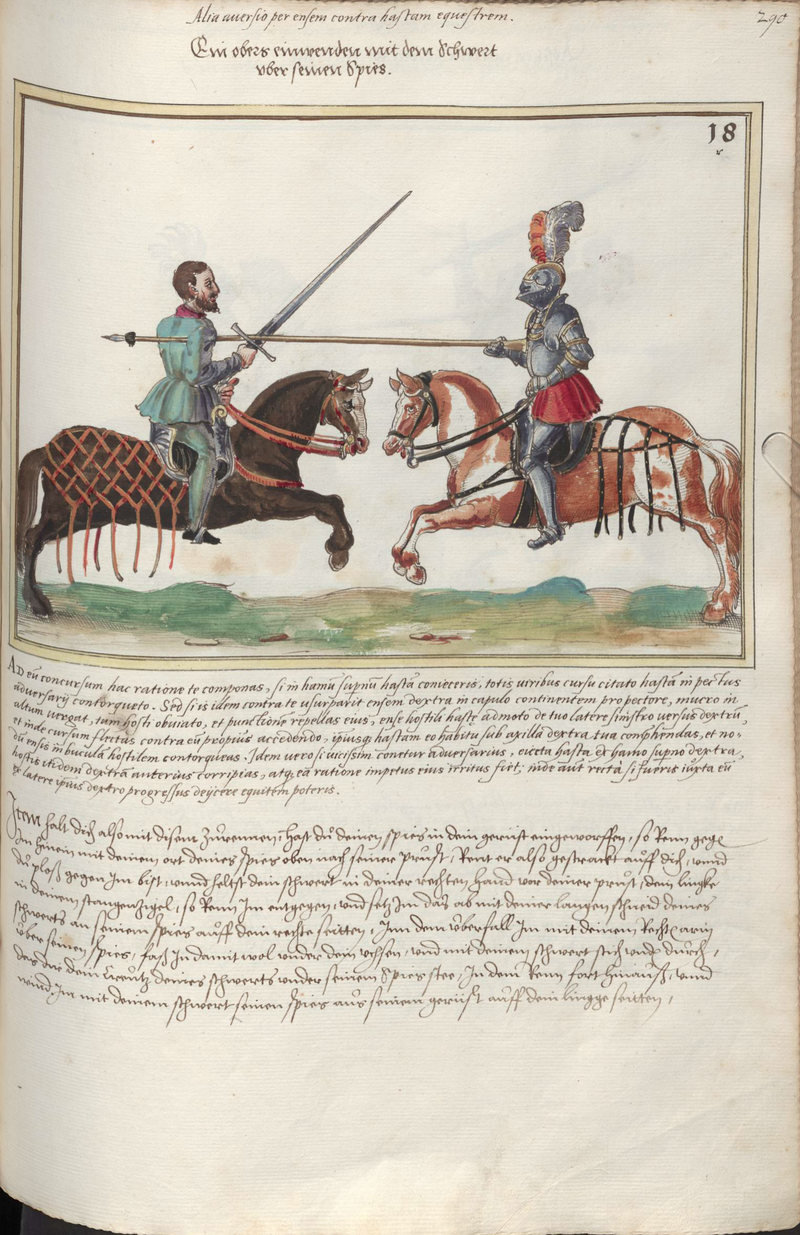 Alia auersio per ensem contra hastam equestrem.
290
Ein obers einwenden mit dem Schwert
vber seinen Spies.
18
AD eũ concursum hac ratione te componas, si in hamũ supnũ hastã conieceris, totis uiribus cursu citato hastã in pectus
aduersarij contorqueto. Sed si is idem contra te usurparit ensem dextra in capulo continentem pro pectore, mucro in
altum uergat, tum hosti obuiato, et punctione repellas eius, ense hostili hastę admoto de tuo latere sinistro uersus dextrũ,
et inde cursum flectas contra eũ propius accedendo, ipsusq; hastam eo habitu sub axilla dextra tua comphendas, et no-
dũ ensis in buculã hostilem contorqueus. Idem uero si uicissim conetur aduersarius, eiecta hasta ex hamo supno dextra,
hostis itidem dextrã anterius corripias, atq; ea ratione impetus eius irritus fiet, inde aũt recta si fueris iuxta eũ
ex latere ipsius dextro progressus deijcere equitem poteris.
Item halt dich also mit disem Zurennen, hast du deinen spies in dem gerüst eingeworffen, so Renn gege
Im hinein mit deinem ort deines spies oben nach seiner prust, Rent er also gestrackt auff dich, vnnd
du plos gegen Im bist, vnnd heltst dein schwert in deiner rechten hand vor deiner prust, dein lingke
in deinem stangenzigel, so Renn Im entgegen, vnd setz Im das ab mit deiner langen schneid deines
schwerts an seinem spies auff dein rechte seitten, Inn dem vberfall Im mit deinem Recht arm
vber seinen spies, fass In damit wol vnder dein vchsen, vnd mit deinem schwert stich vnden durch,
das dir dein Creutz deines schwerts vnder seinem Spies stee, In dem Renn fort hinaus, vnnd
wind Im mit deinem schwert seinen spies aus seinem gerüst auff dein lingge seitten,